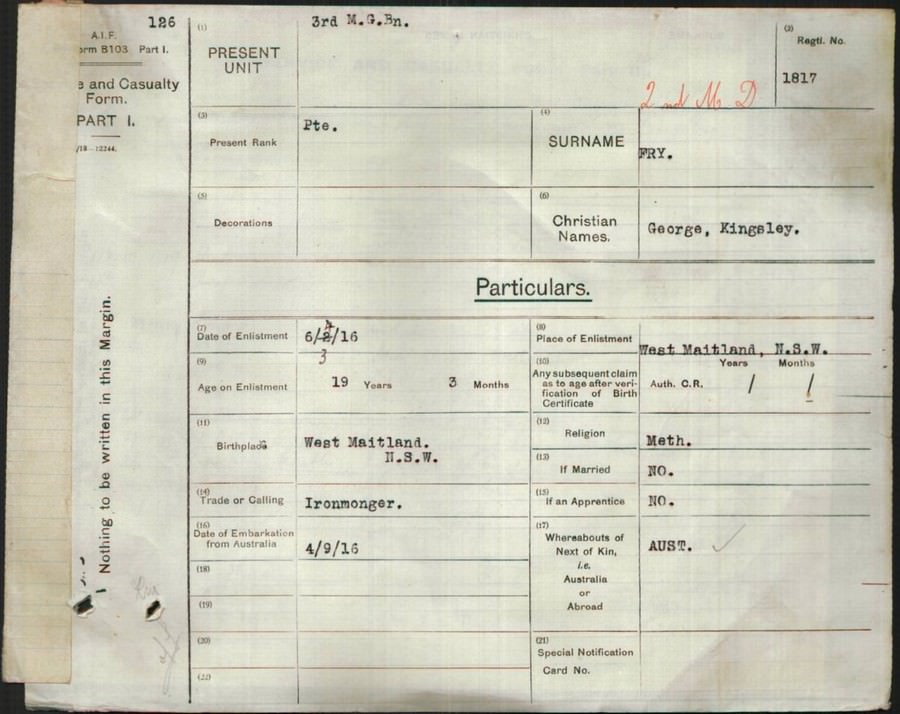 126
A.I.F.
orm B103 Part I.
e and Casualty
Form.
PART I.
/18—12244.
Nothing to be written in this Margin.
(1)
PRESENT
UNIT
3rd M.G.Bn.
2nd M. D.
(2)
Regtl. No.
1817
(3)
Present Rank
Pte.
(4)
SURNAME
FRY.
(5)
Decorations
(6)
Christian
Names.
George, Kingsley.
Particulars.
(7)
Date of Enlistment
4
6/2/16
3
(8)
Place of Enlistment
West Maitland, N.S.W.
(9)
Age on Enlistment
19 Years 3 Months
(10)
Any subsequent claim
as to age after veri-
fication of Birth
Certificate
Years Months
Auth. C.R. / /
(11)
Birthplace
West Maitland.
N.S.W.
(12)
Religion
Meth.
(13)
If Married
NO.
(14)
Trade or Calling
Ironmonger.
(15)
If an Apprentice
NO.
(16)
Date of Embarkation
from Australia
4/9/16
(17)
Whereabouts of
Next of Kin,
i.e.
Australia
or
Abroad
AUST.
(18)
(19)
(20)
(21)
Special Notification
Card No.
(22)